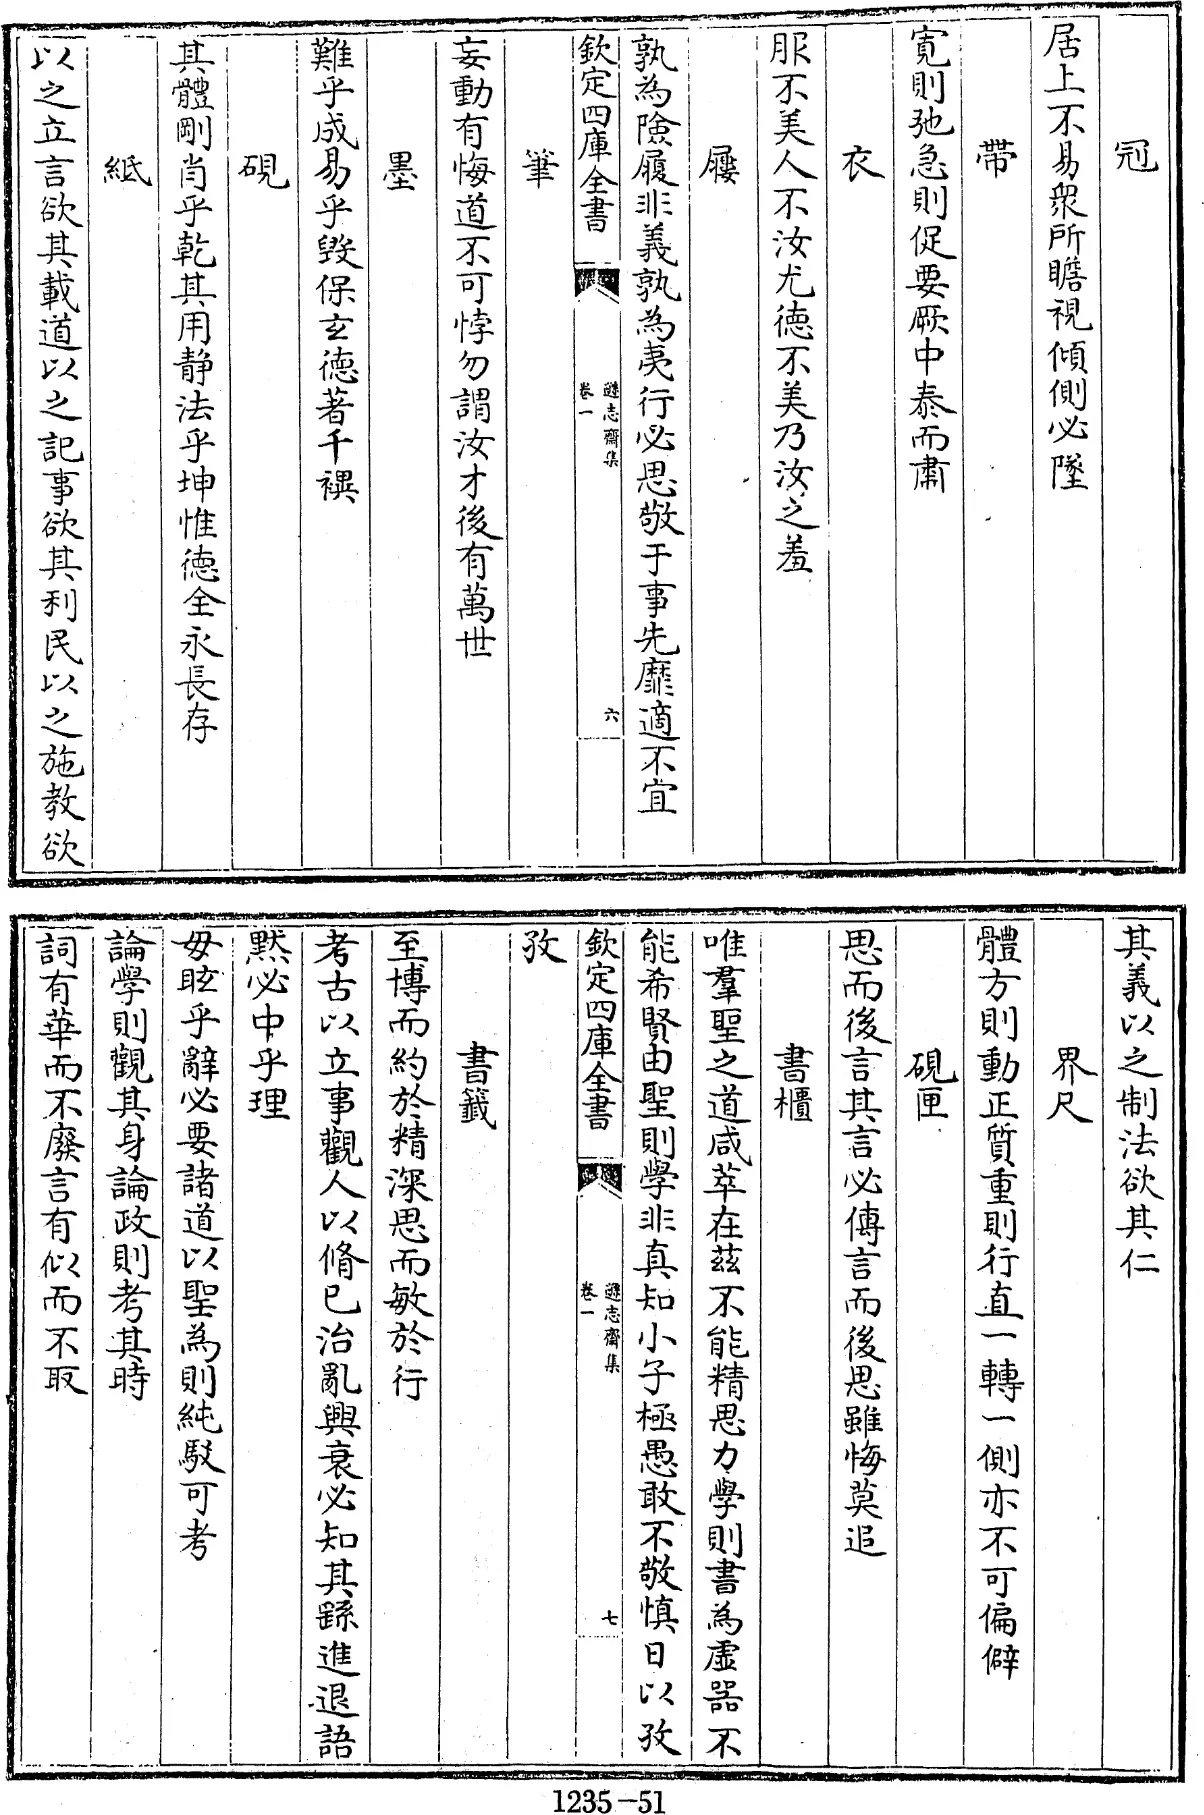 冠
居上不易衆所瞻視傾側必墜
帶
寛則弛急則促要厥中泰而肅
衣
服不美人不汝尤德不美乃汝之羞
屨
孰為險履非義孰為夷行必思敬于事先靡適不宜
欽定四庫全書
遜志齋集
卷一
六
筆
妄動有悔道不可悖勿謂汝才後有萬世
墨
難乎成易乎毀保玄德著千禩
硯
其體剛肖乎乾其用静法乎坤惟德全永長存
紙
以之立言欲其載道以之記事欲其利民以之施教欲
其義以之制法欲其仁
界尺
體方則動正質重則行直一轉一側亦不可偏僻
硯匣
思而後言其言必傳言而後思雖悔莫追
書櫃
唯羣聖之道咸萃在茲不能精思力學則書為虛器不
能希賢由聖則學非真知小子極愚敢不敬慎日以孜
欽定四庫全書
遜志齋集
卷一
七
孜
書籤
至博而約於精深思而敏於行
考古以立事觀人以脩已治亂興衰必知其繇進退語
黙必中乎理
毋眩乎辭必要諸道以聖為則純駁可考
論學則觀其身論政則考其時
詞有華而不廢言有似而不取
1235-51